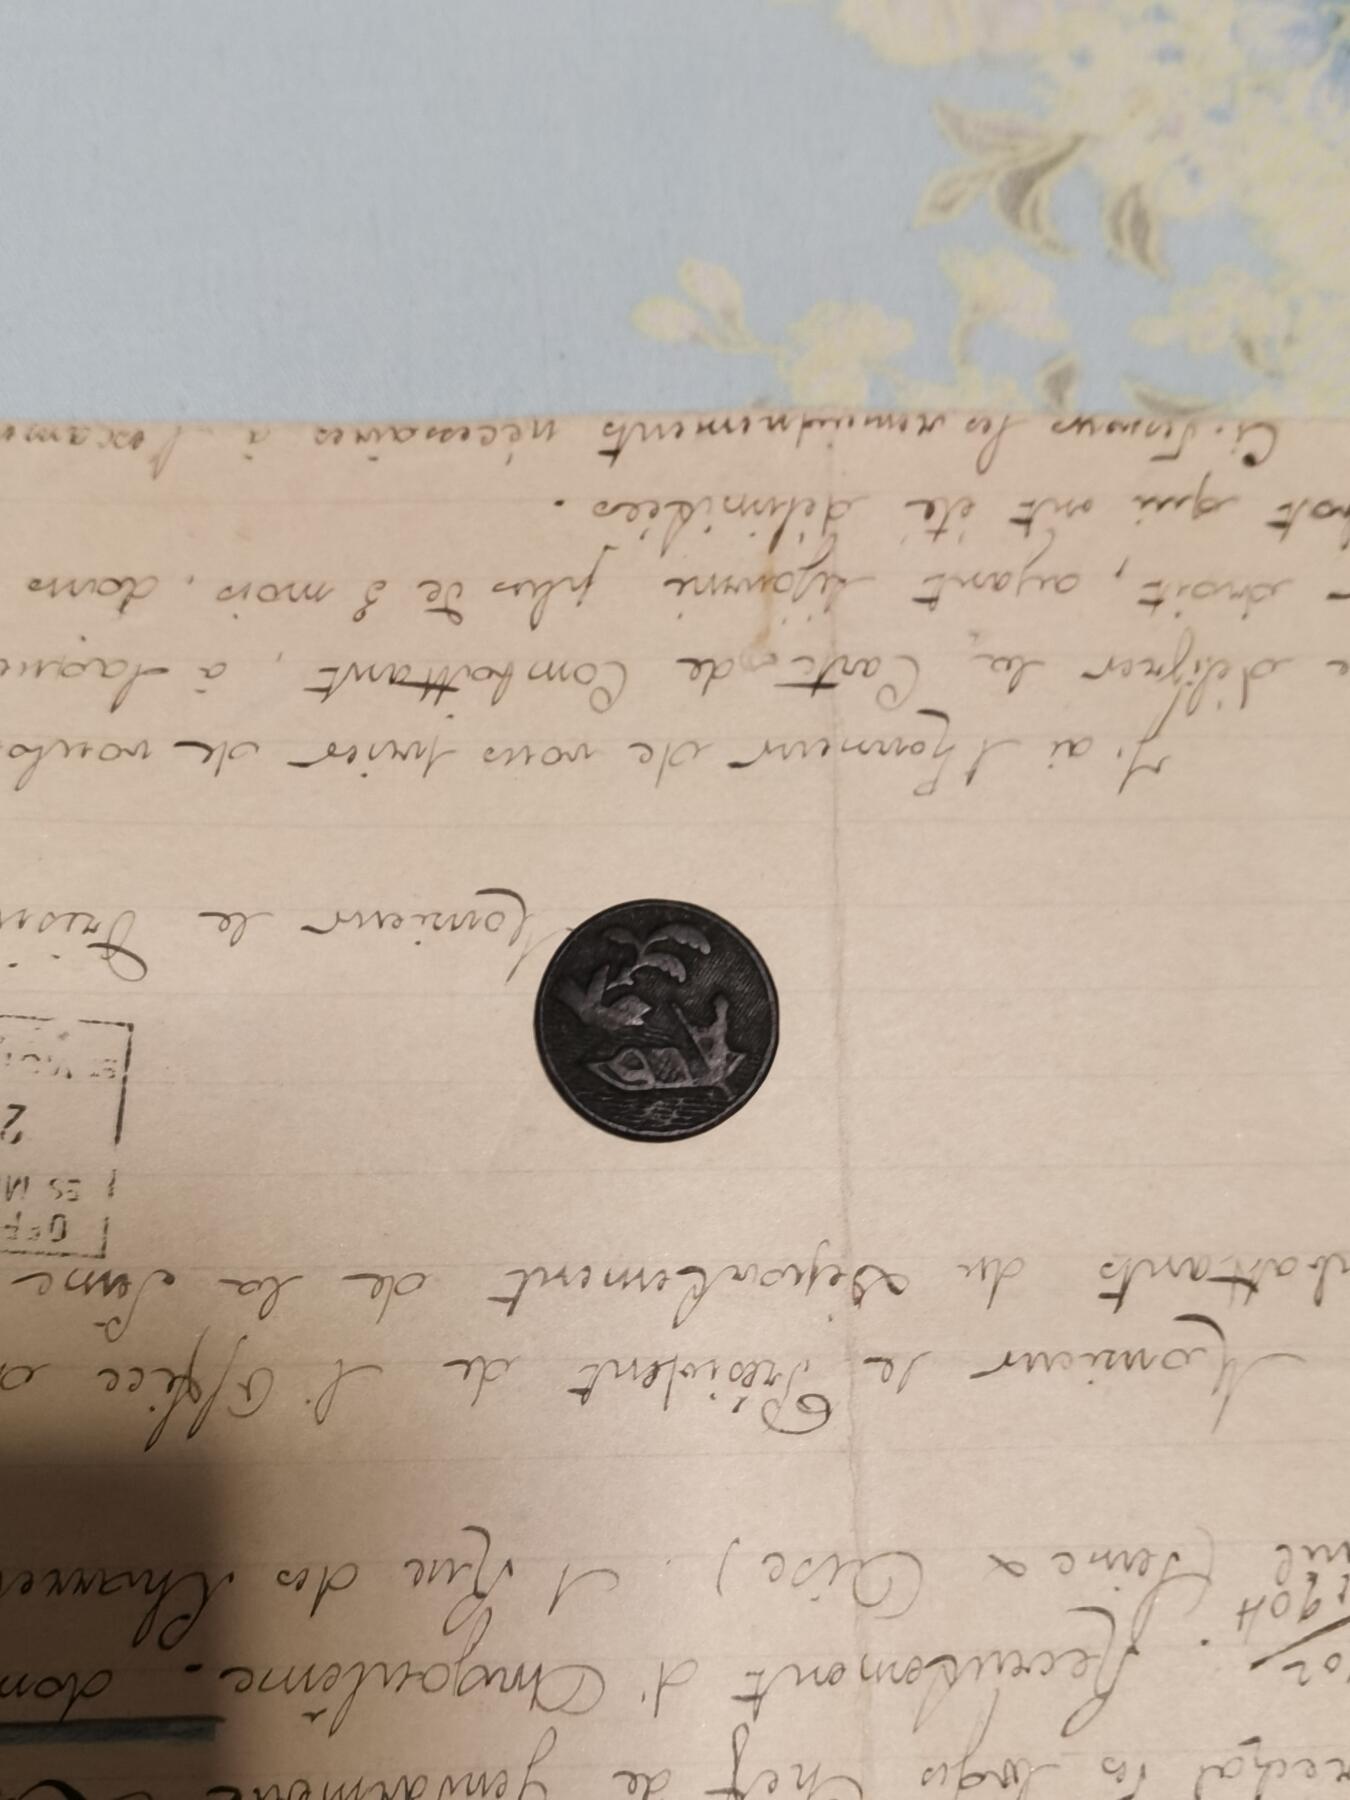 réchal des logis Chef de Gendarmerie
Recrutement d'Angoulême. dom
(Seine & Oise) 1 Rue des
Monsieur le Président de l'Office
battants du Département de la Seine
OFF
ES M
2
Monsieur le Prési
J'ai l'honneur de vous prier de voulo
e délivrer la Carte de Combattant, à laque
droit, ayant séjourné plus de 3 mois, dans
qui ont été délimitées.
Ci-dessous les renseignements nécessaires à l'exame